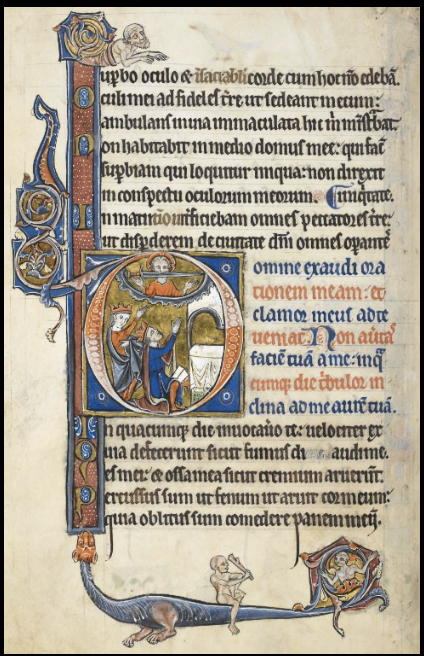 uꝑbo oculo & ĩsaciabili corde cum hoc nõ edebã.
culi mei ad fideles tr̃e ut sedeant mecum:
ambulans in uia immaculata hic m̃ mĩstᵃbat.
on habitabit in medio domus mee: qui facit
suꝑbiam qui loquitur iniqua: non direxit
in conspectu oculorum meorum. iniquitatẽ.
n matutino int̃ficiebam omnes peccatores tr̃e:
ut disꝑderem de ciuitate dñi omnes oꝑantes
Domine exaudi ora
tionem meam: et
clamor meus ad te
ueniat. Non aũtas
faciẽ tuã a me: inq̃
cumq; die tⁱbulor in
clina ad me aurẽ tuã.
n quacumque die inuocauero te: uelociter ex
uia defecerunt sicut fumus di audi me.
es mei: & ossa mea sicut cremium aruerũt.
ercussus sum ut fenum & aruit cor meum:
quia oblitus sum comedere panem meũ.